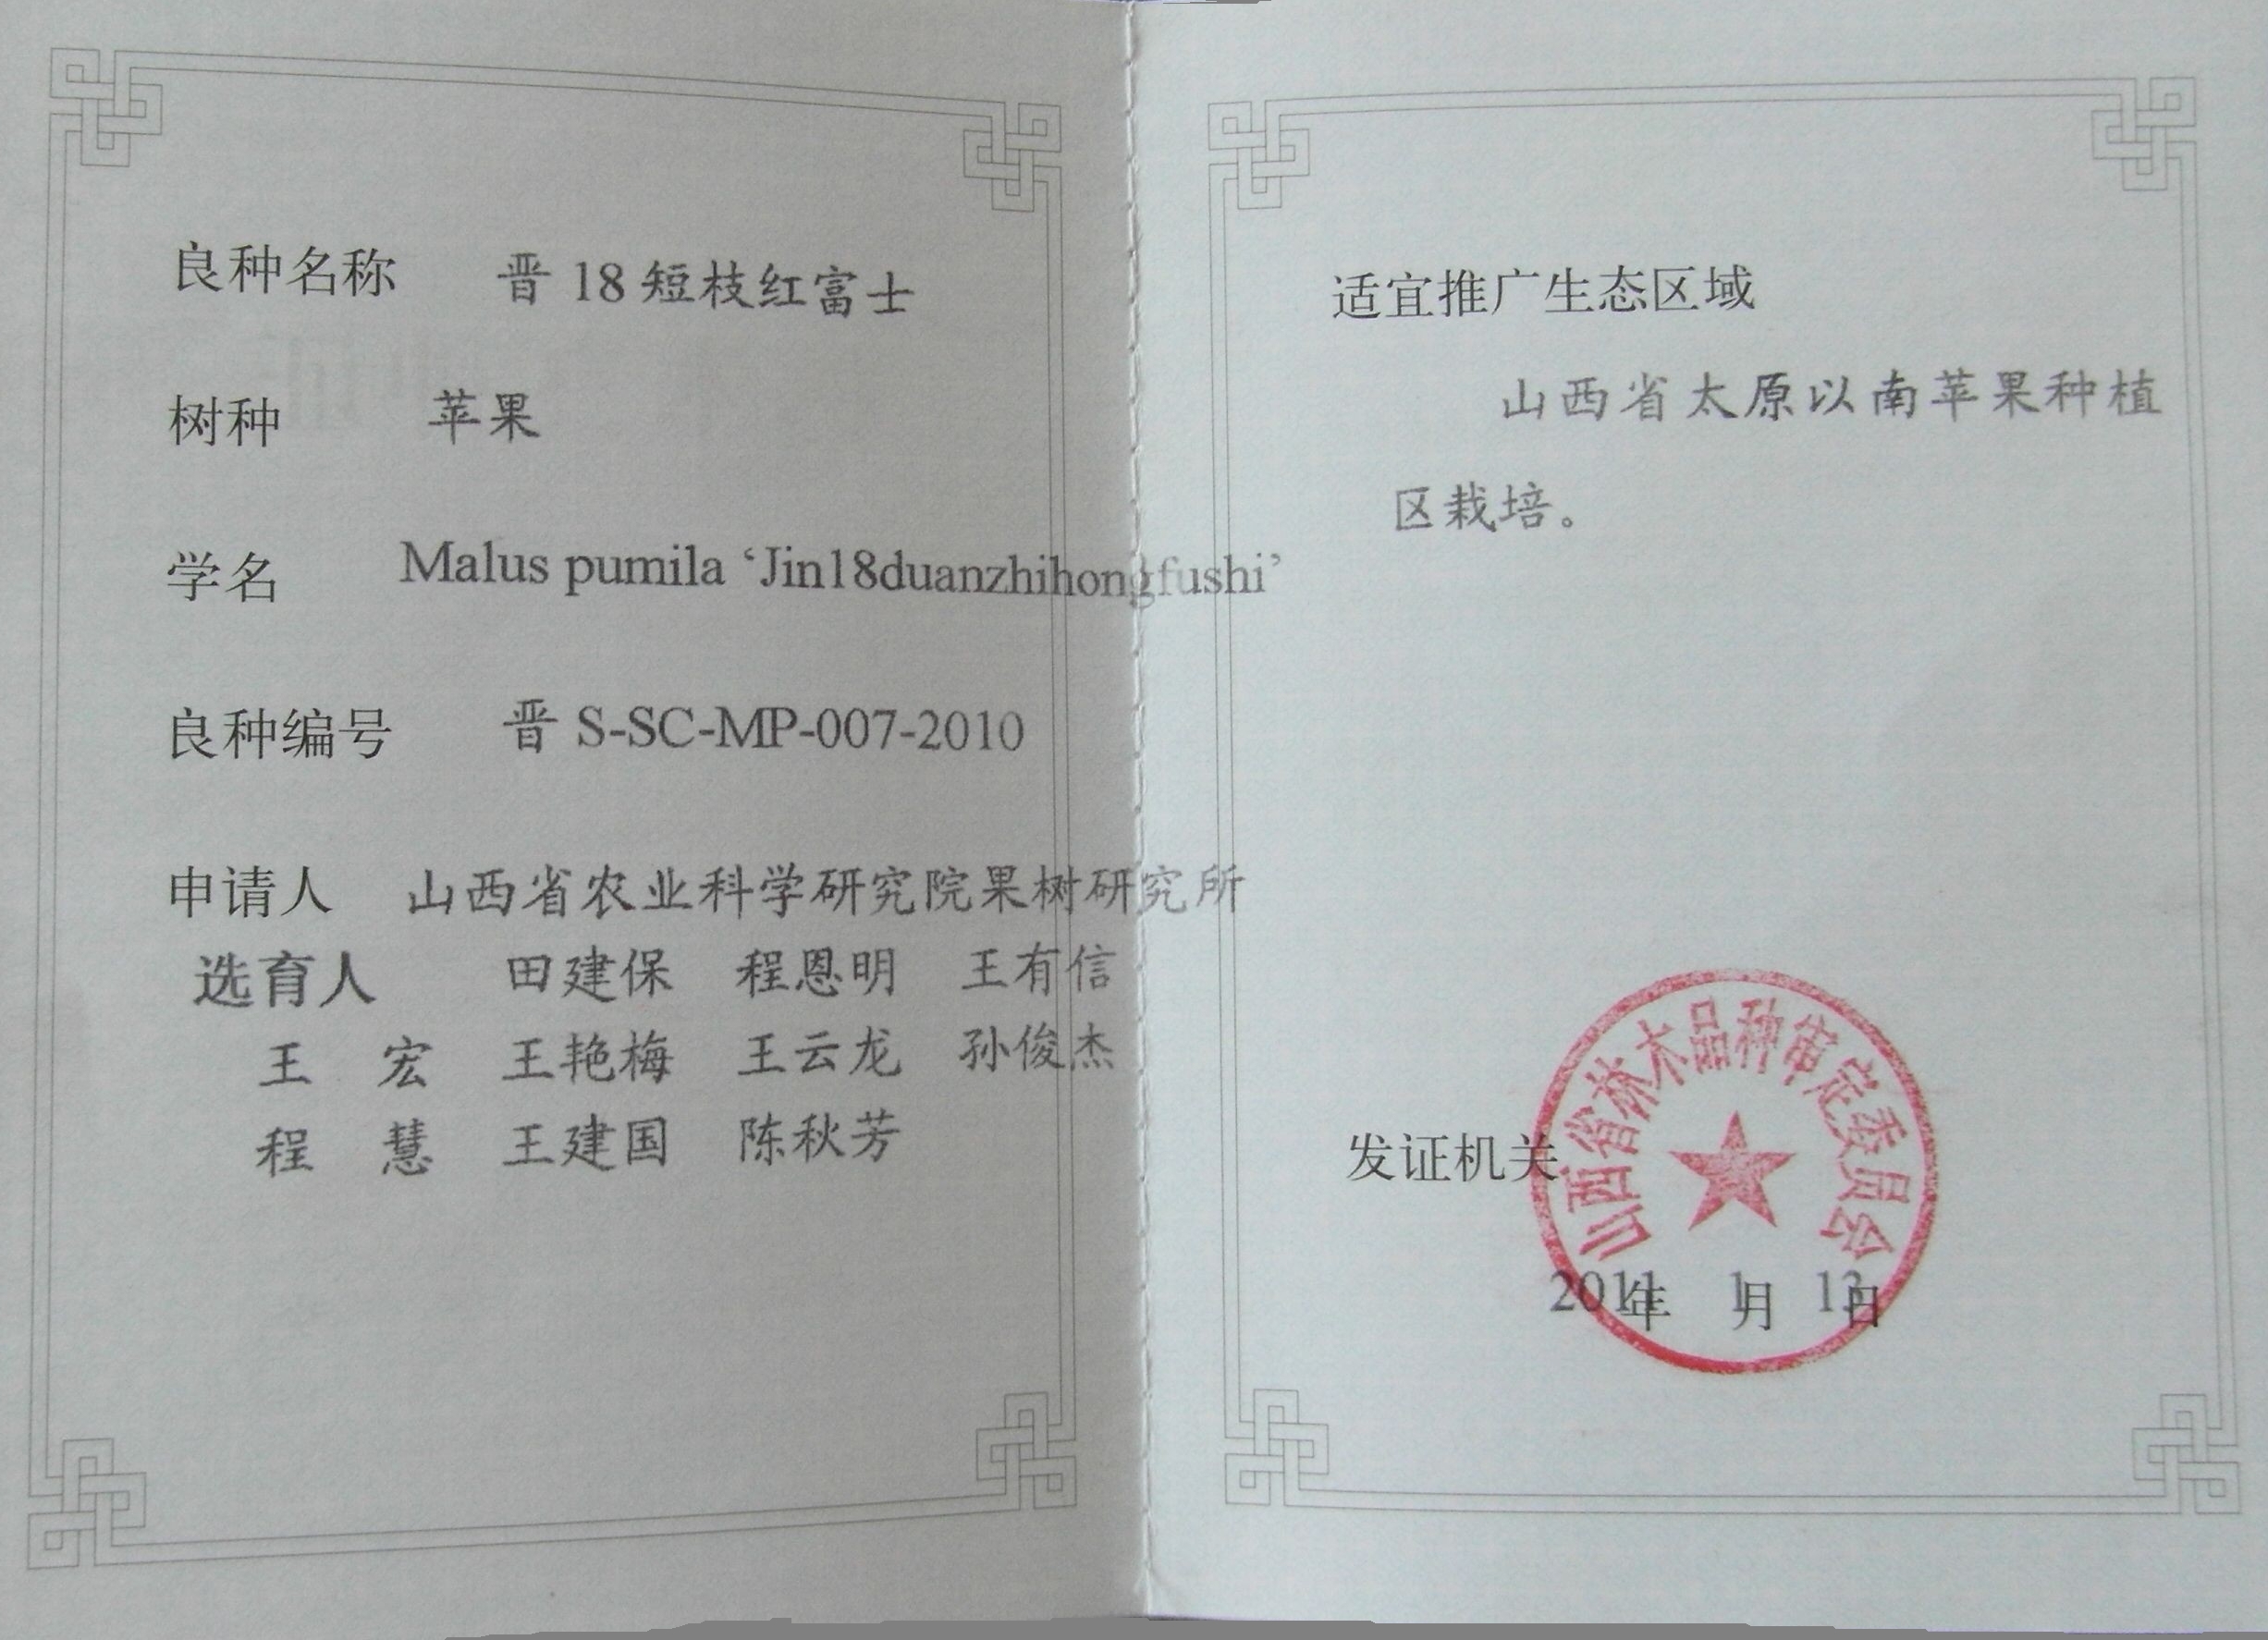 良种名称 晋18短枝红富士
树种 苹果
学名 Malus pumila ‘Jin18duanzhihongfushi’
良种编号 晋S-SC-MP-007-2010
申请人 山西省农业科学研究院果树研究所
选育人 田建保 程恩明 王有信
王 宏 王艳梅 王云龙 孙俊杰
程 慧 王建国 陈秋芳
适宜推广生态区域
山西省太原以南苹果种植
区栽培。
发证机关
山西省林木品种审定委员会
2011年 1月 13日